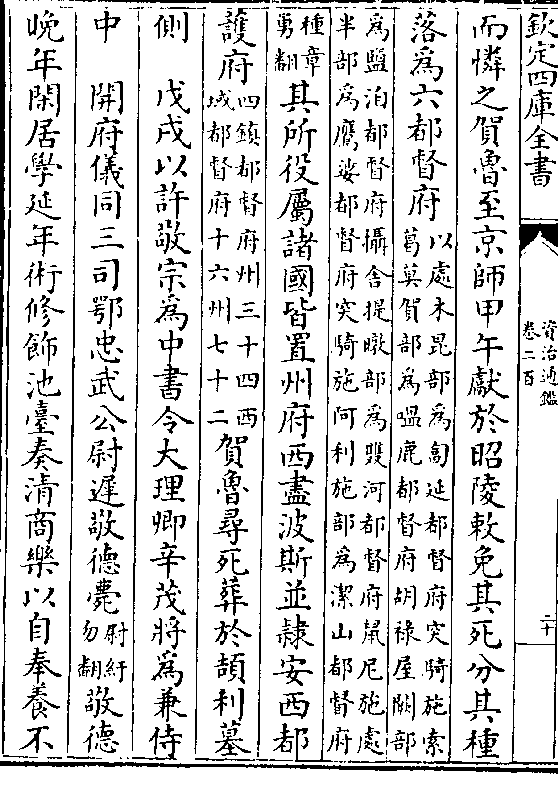 欽定四庫全書
資治通鑑
卷二百
二十
而憐之賀魯至京師甲午獻於昭陵敕免其死分其種
落爲六都督府以處木昆部爲匐延都督府突騎施索
葛莫賀部爲嗢鹿都督府胡祿屋闕部
爲鹽泊都督府攝舍提暾部爲雙河都督府鼠尼施處
半部爲鷹娑都督府突騎施阿利施部爲潔山都督府
種章
勇翻其所役屬諸國皆置州府西盡波斯並隸安西都
護府四鎮都督府州三十四西
域都督府十六州七十二賀魯尋死葬於頡利墓
側　戊戌以許敬宗爲中書令大理卿辛茂將爲兼侍
中　開府儀同三司鄂忠武公尉遲敬德薨尉紆
勿翻敬德
晚年閑居學延年術修飾池臺奏清商樂以自奉養不